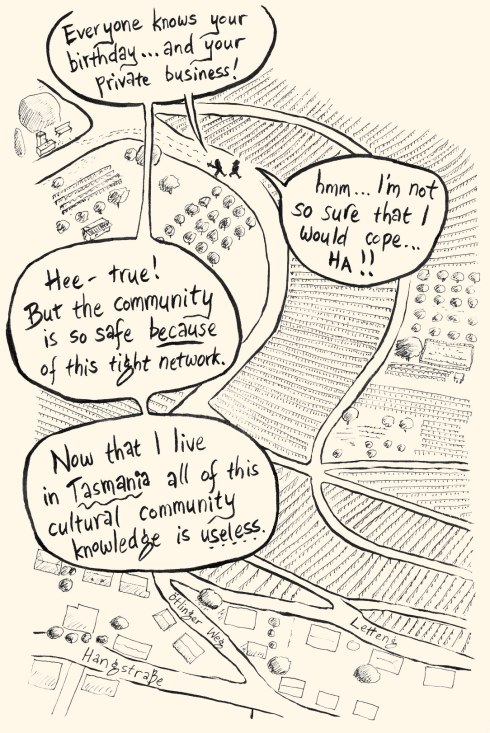 Everyone knows your
birthday... and your
private business!
hmm... I'm not
so sure that I
would cope...
HA!!
Hee - true!
But the community
is so safe because
of this tight network.
Now that I live
in Tasmania all of this
cultural community
knowledge is useless.
Ötlinger Weg
Letteng
Hangstraße